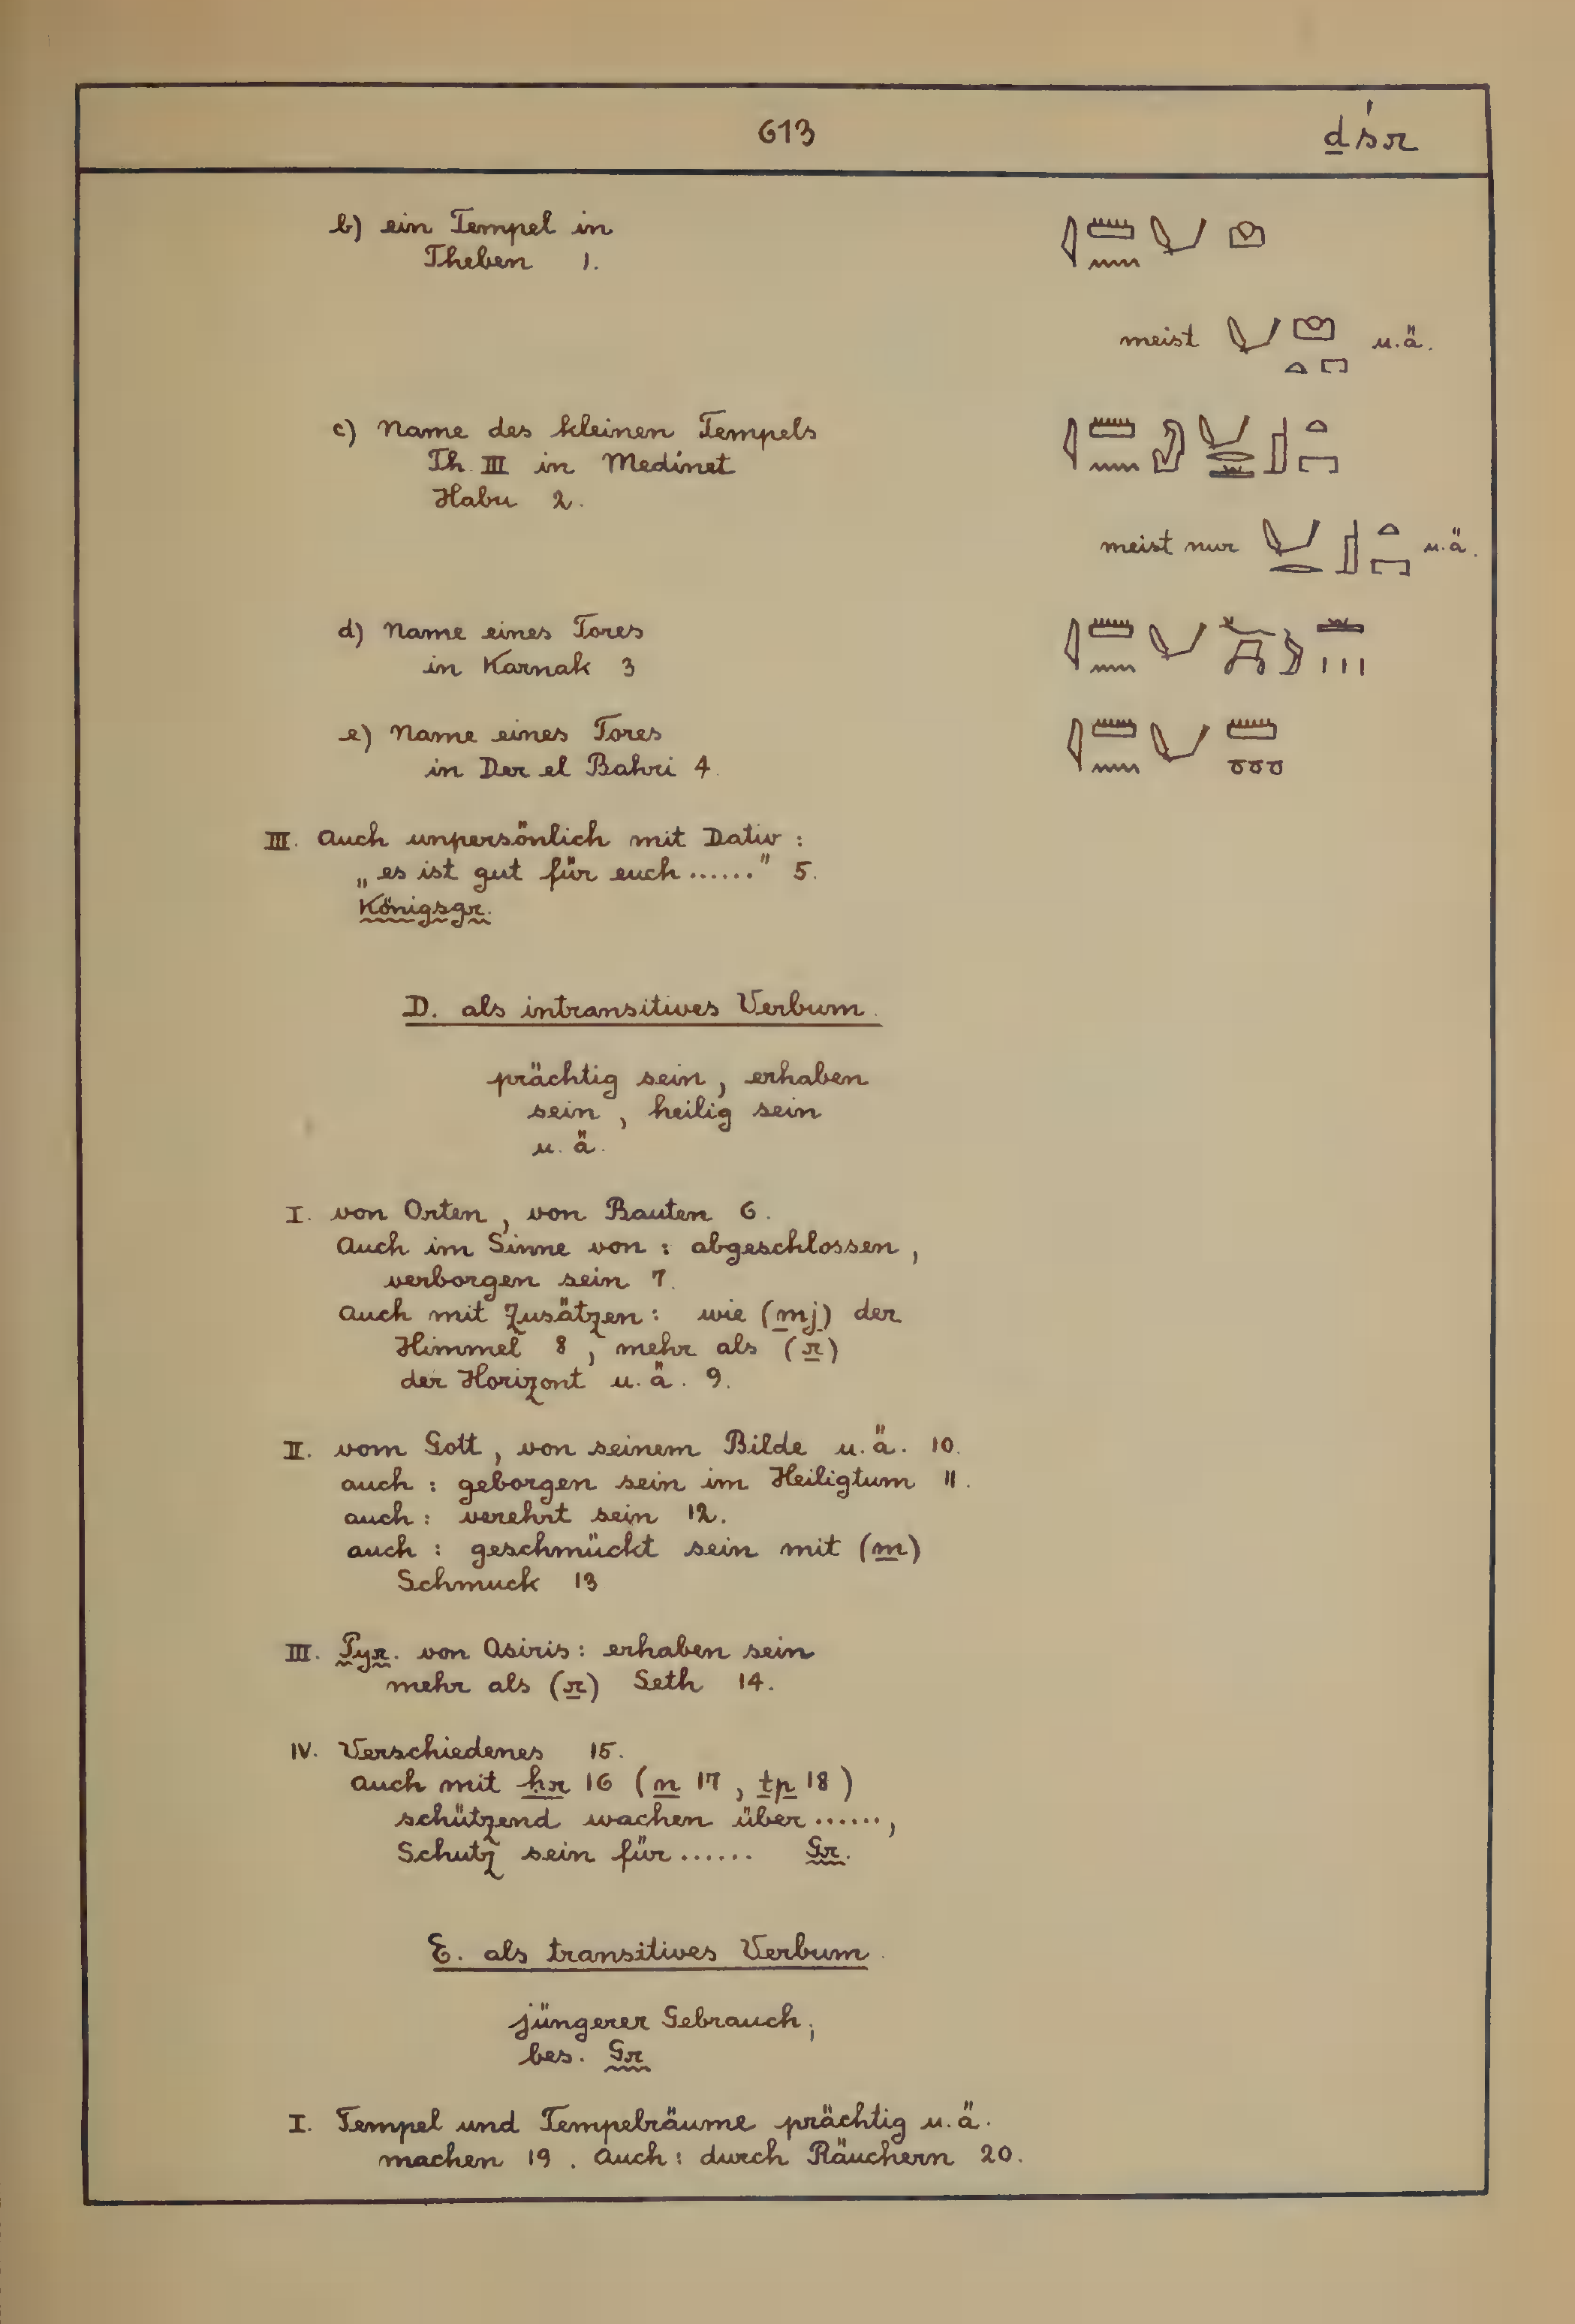 613
ḏśr
b) ein Tempel in
Theben 1.
meist u.ä.
c) Name des kleinen Tempels
Th. III in Medinet
Habu 2.
meist nur u.ä.
d) Name eines Tores
in Karnak 3
e) Name eines Tores
in Der el Bahri 4.
III. Auch unpersönlich mit Dativ :
„es ist gut für euch ......" 5.
Königsgr.
D. als intransitives Verbum.
prächtig sein, erhaben
sein, heilig sein
u. ä.
I. von Orten, von Bauten 6.
Auch im Sinne von : abgeschlossen,
verborgen sein 7.
Auch mit Zusätzen : wie (mj) der
Himmel 8, mehr als (r)
der Horizont u. ä. 9.
II. vom Gott, von seinem Bilde u. ä. 10.
auch : geborgen sein im Heiligtum 11.
auch : verehrt sein 12.
auch : geschmückt sein mit (m)
Schmuck 13
III. Pyr. von Osiris : erhaben sein
mehr als (r) Seth 14.
IV. Verschiedenes 15.
Auch mit ḥr 16 (n 17, tp 18)
schützend wachen über ......,
Schutz sein für ...... Gr.
E. als transitives Verbum.
jüngerer Gebrauch;
bes. Gr
I. Tempel und Tempelräume prächtig u. ä.
machen 19. Auch : durch Räuchern 20.